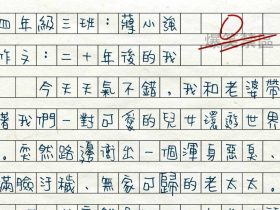 四年級三班：蔣小強
作文：二十年後的我
今天天氣不錯，我和老婆帶
著我們一對可愛的兒女環遊世界
。突然路邊衝出一個渾身惡臭、
滿臉汙穢、無家可歸的老太太。
0